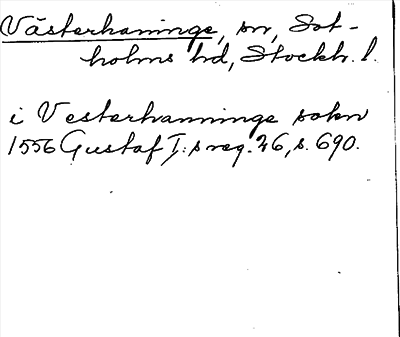 Västerhaninge, sn, Sot-
holms hd, Stockh. l.
i Vesterhanninge sokn
1556 Gustaf I:s reg. 26, s. 690.